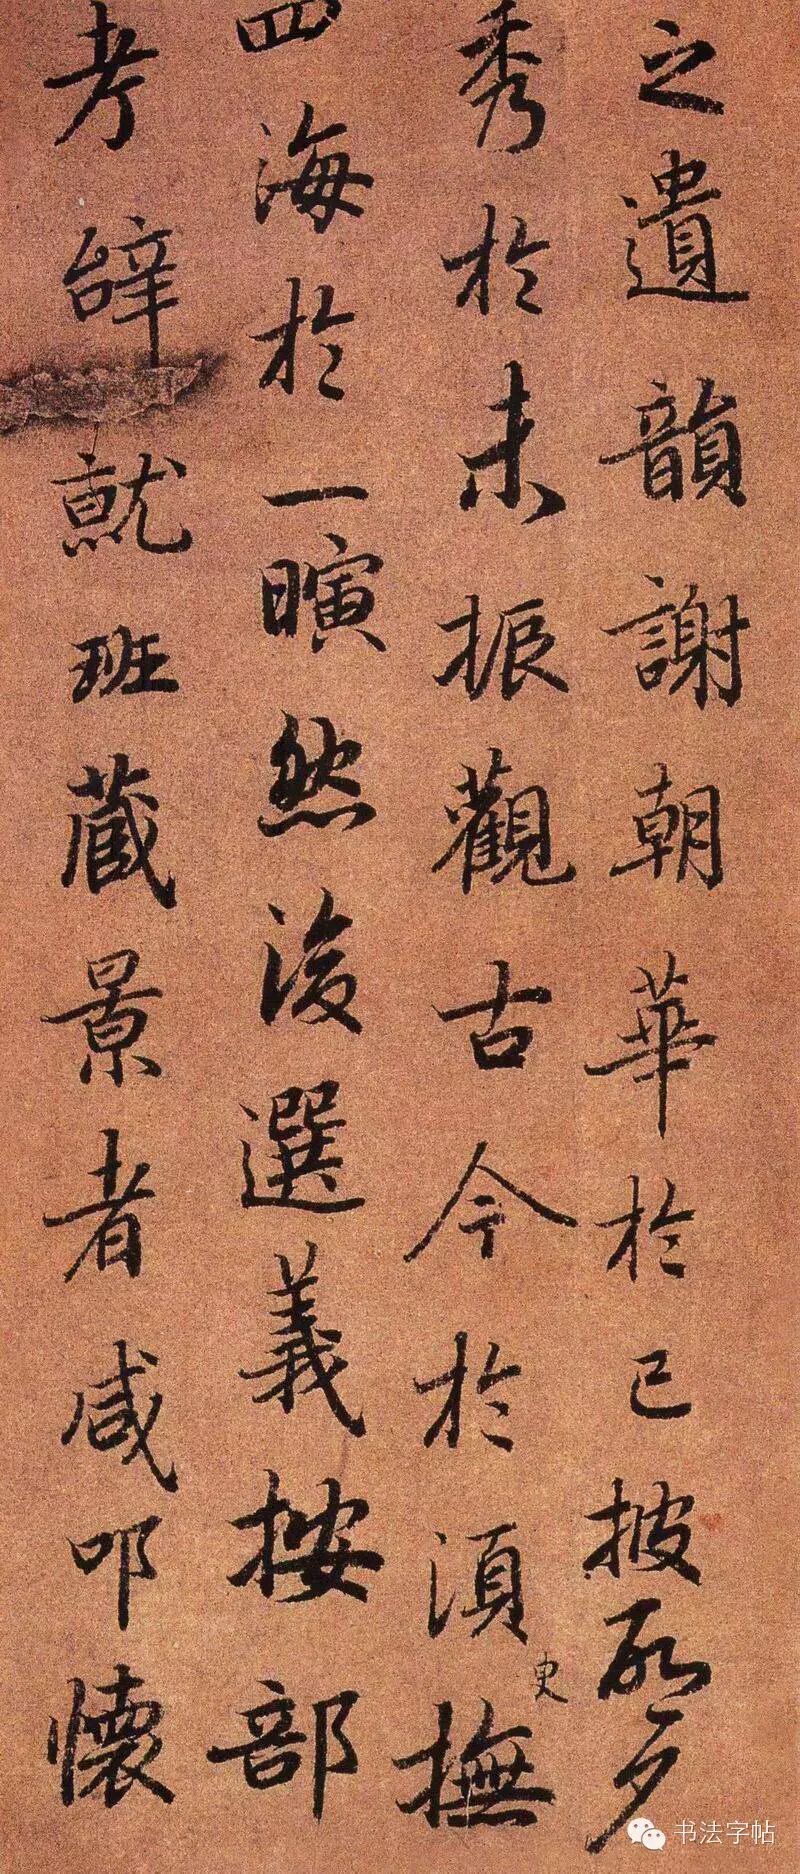 之遺韻謝朝華於已披啓夕
秀於未振觀古今於須臾撫
四海於一瞚然後選義按部
考辝就班藏景者咸叩懷
书法字帖